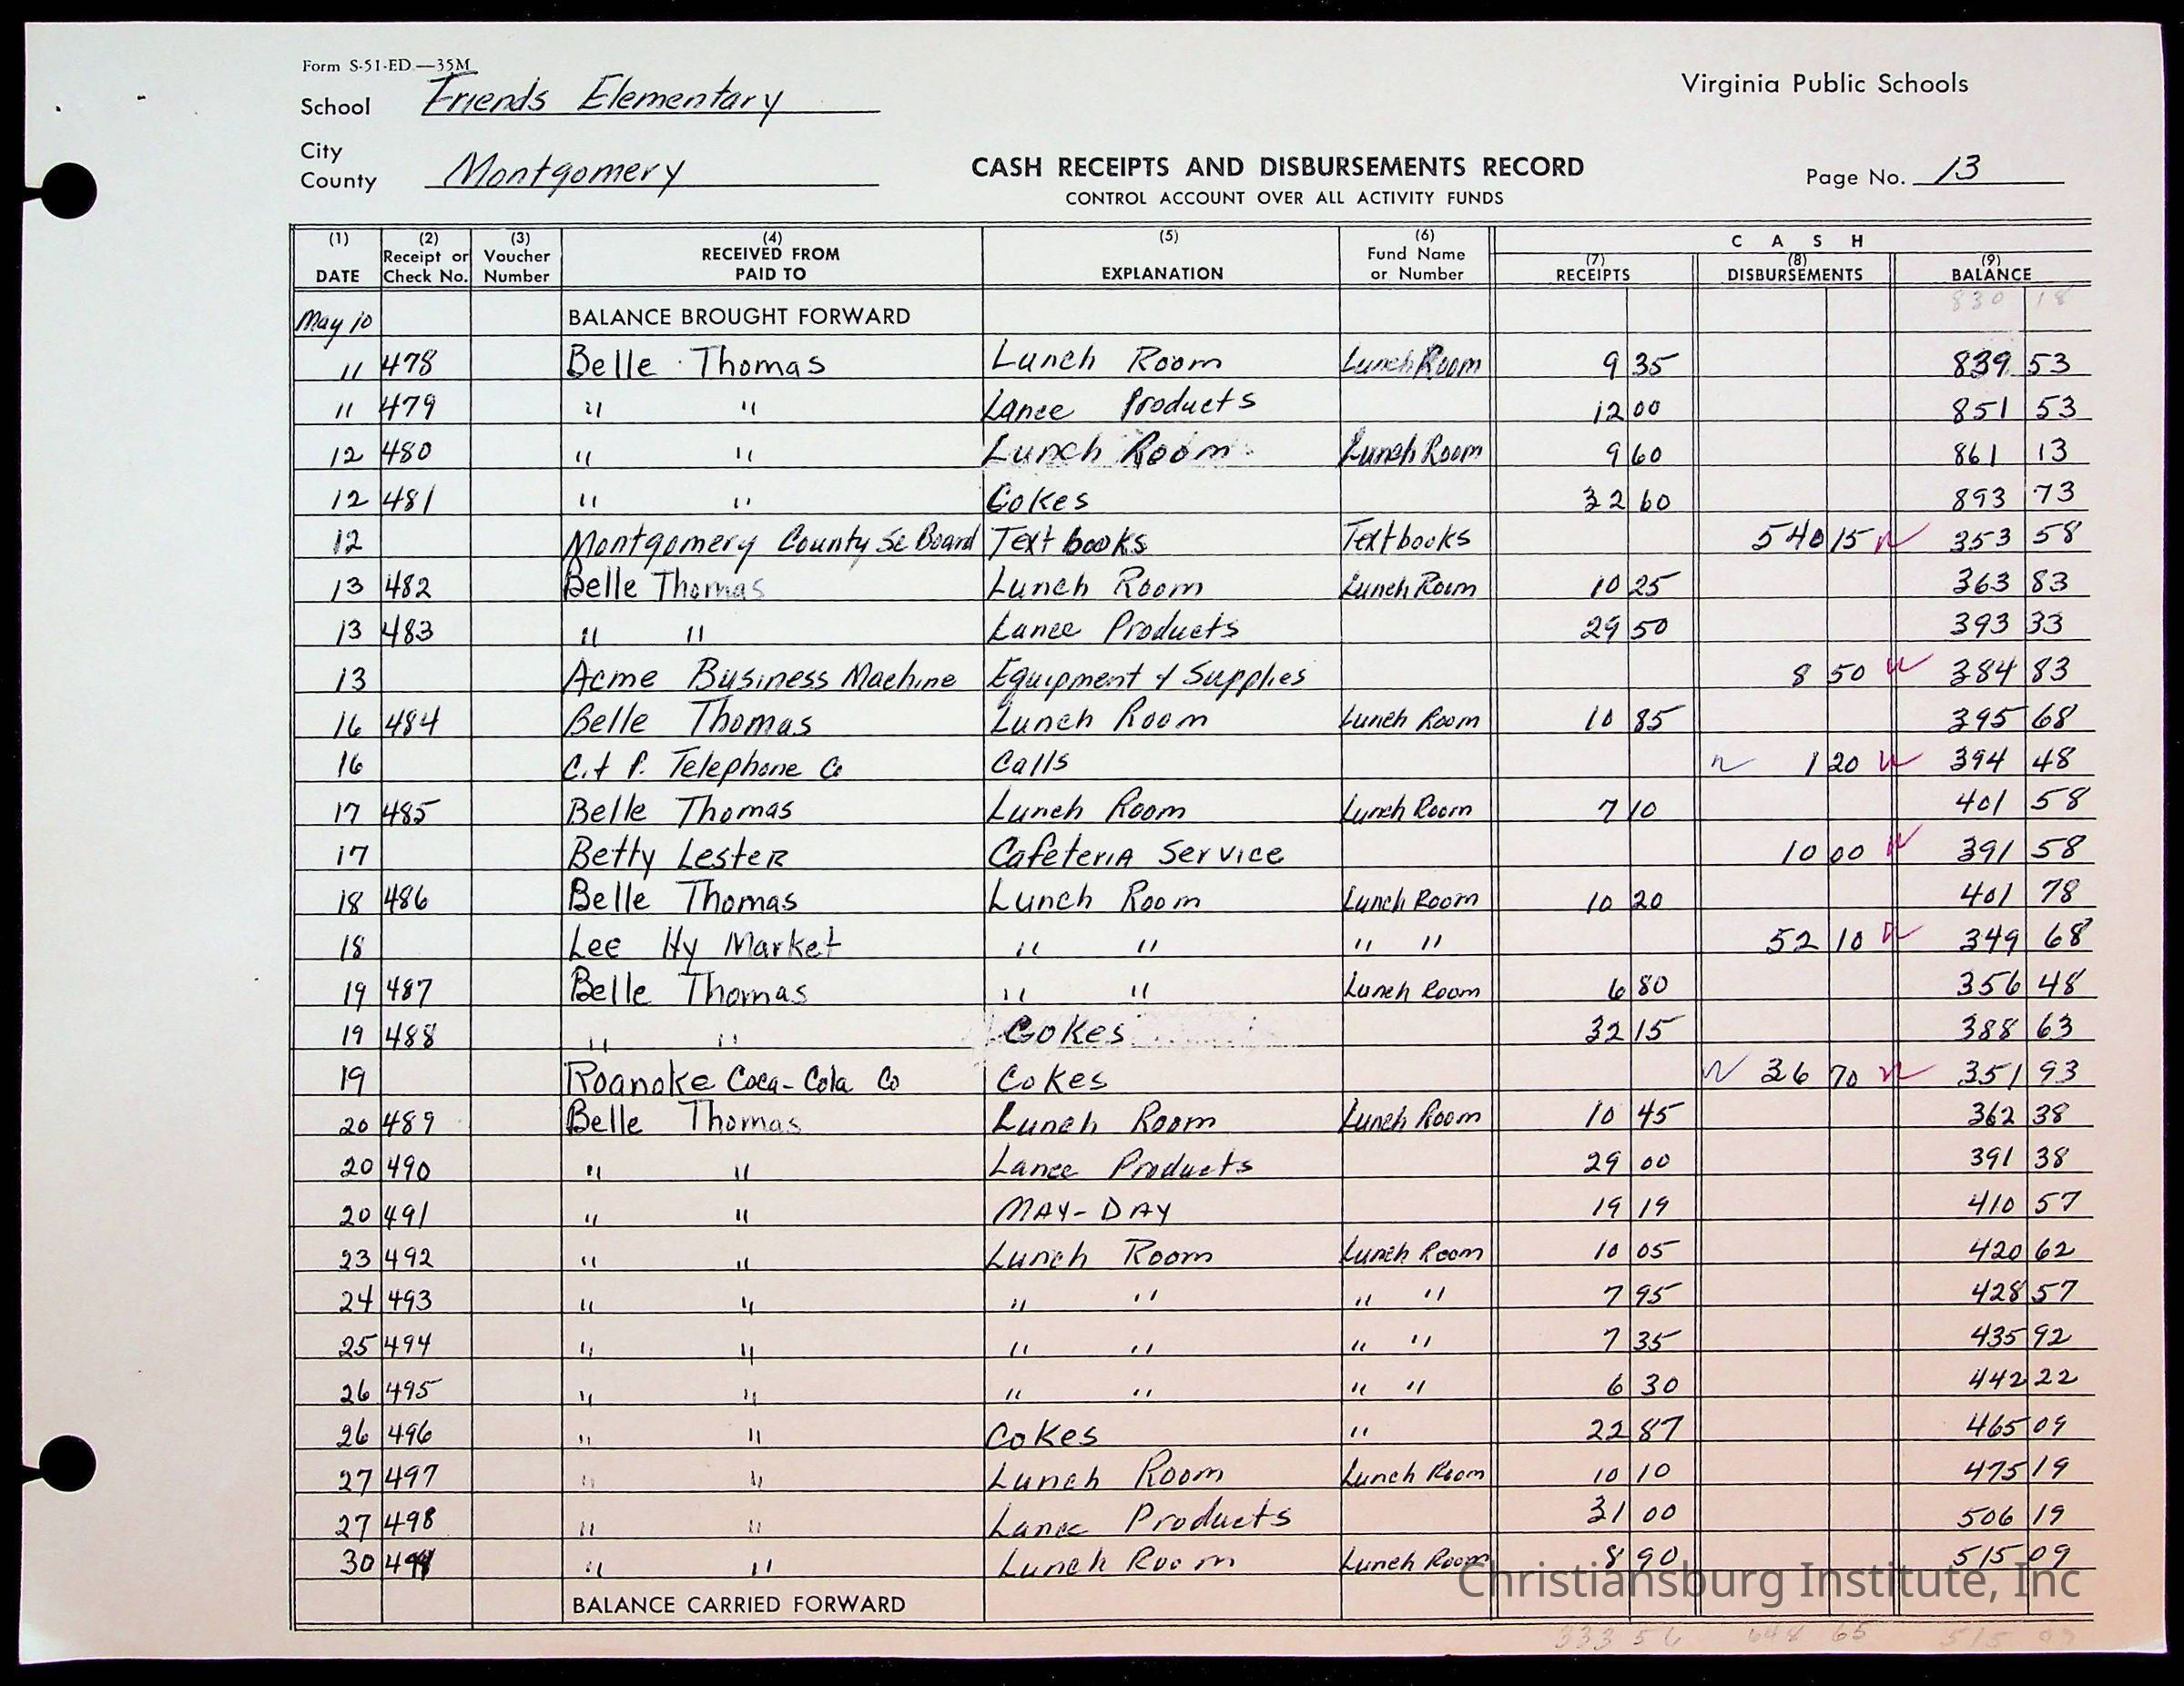 Form S-51-ED.—35M
School Friends Elementary
Virginia Public Schools
City
County Montgomery
CASH RECEIPTS AND DISBURSEMENTS RECORD
CONTROL ACCOUNT OVER ALL ACTIVITY FUNDS
Page No. 13
(1) DATE (2) Receipt or Check No. (3) Voucher Number (4) RECEIVED FROM PAID TO (5) EXPLANATION (6) Fund Name or Number CASH (7) RECEIPTS (8) DISBURSEMENTS (9) BALANCE
May 10 BALANCE BROUGHT FORWARD 830 18
11 478 Belle Thomas Lunch Room Lunch Room 9 35 839 53
11 479 " " Lance Products 12 00 851 53
12 480 " " Lunch Room Lunch Room 9 60 861 13
12 481 " " Cokes 32 60 893 73
12 Montgomery County Sc Board Text books Textbooks 540 15 353 58
13 482 Belle Thomas Lunch Room Lunch Room 10 25 363 83
13 483 " " Lance Products 29 50 393 33
13 Acme Business Machine Equipment & Supplies 8 50 384 83
16 484 Belle Thomas Lunch Room Lunch Room 10 85 395 68
16 C. & P. Telephone Co Calls 1 20 394 48
17 485 Belle Thomas Lunch Room Lunch Room 7 10 401 58
17 Betty Lester Cafeteria Service 10 00 391 58
18 486 Belle Thomas Lunch Room Lunch Room 10 20 401 78
18 Lee Hy Market " " " " 52 10 349 68
19 487 Belle Thomas " " Lunch Room 6 80 356 48
19 488 " " Cokes 32 15 388 63
19 Roanoke Coca-Cola Co Cokes 36 70 351 93
20 489 Belle Thomas Lunch Room Lunch Room 10 45 362 38
20 490 " " Lance Products 29 00 391 38
20 491 " " MAY-DAY 19 19 410 57
23 492 " " Lunch Room Lunch Room 10 05 420 62
24 493 " " " " " " 7 95 428 57
25 494 " " " " " " 7 35 435 92
26 495 " " " " " " 6 30 442 22
26 496 " " Cokes " 22 87 465 09
27 497 " " Lunch Room Lunch Room 10 10 475 19
27 498 " " Lance Products 31 00 506 19
30 499 " " Lunch Room Lunch Room 8 90 515 09
Christiansburg Institute, Inc
BALANCE CARRIED FORWARD
333 56 648 65 515 09